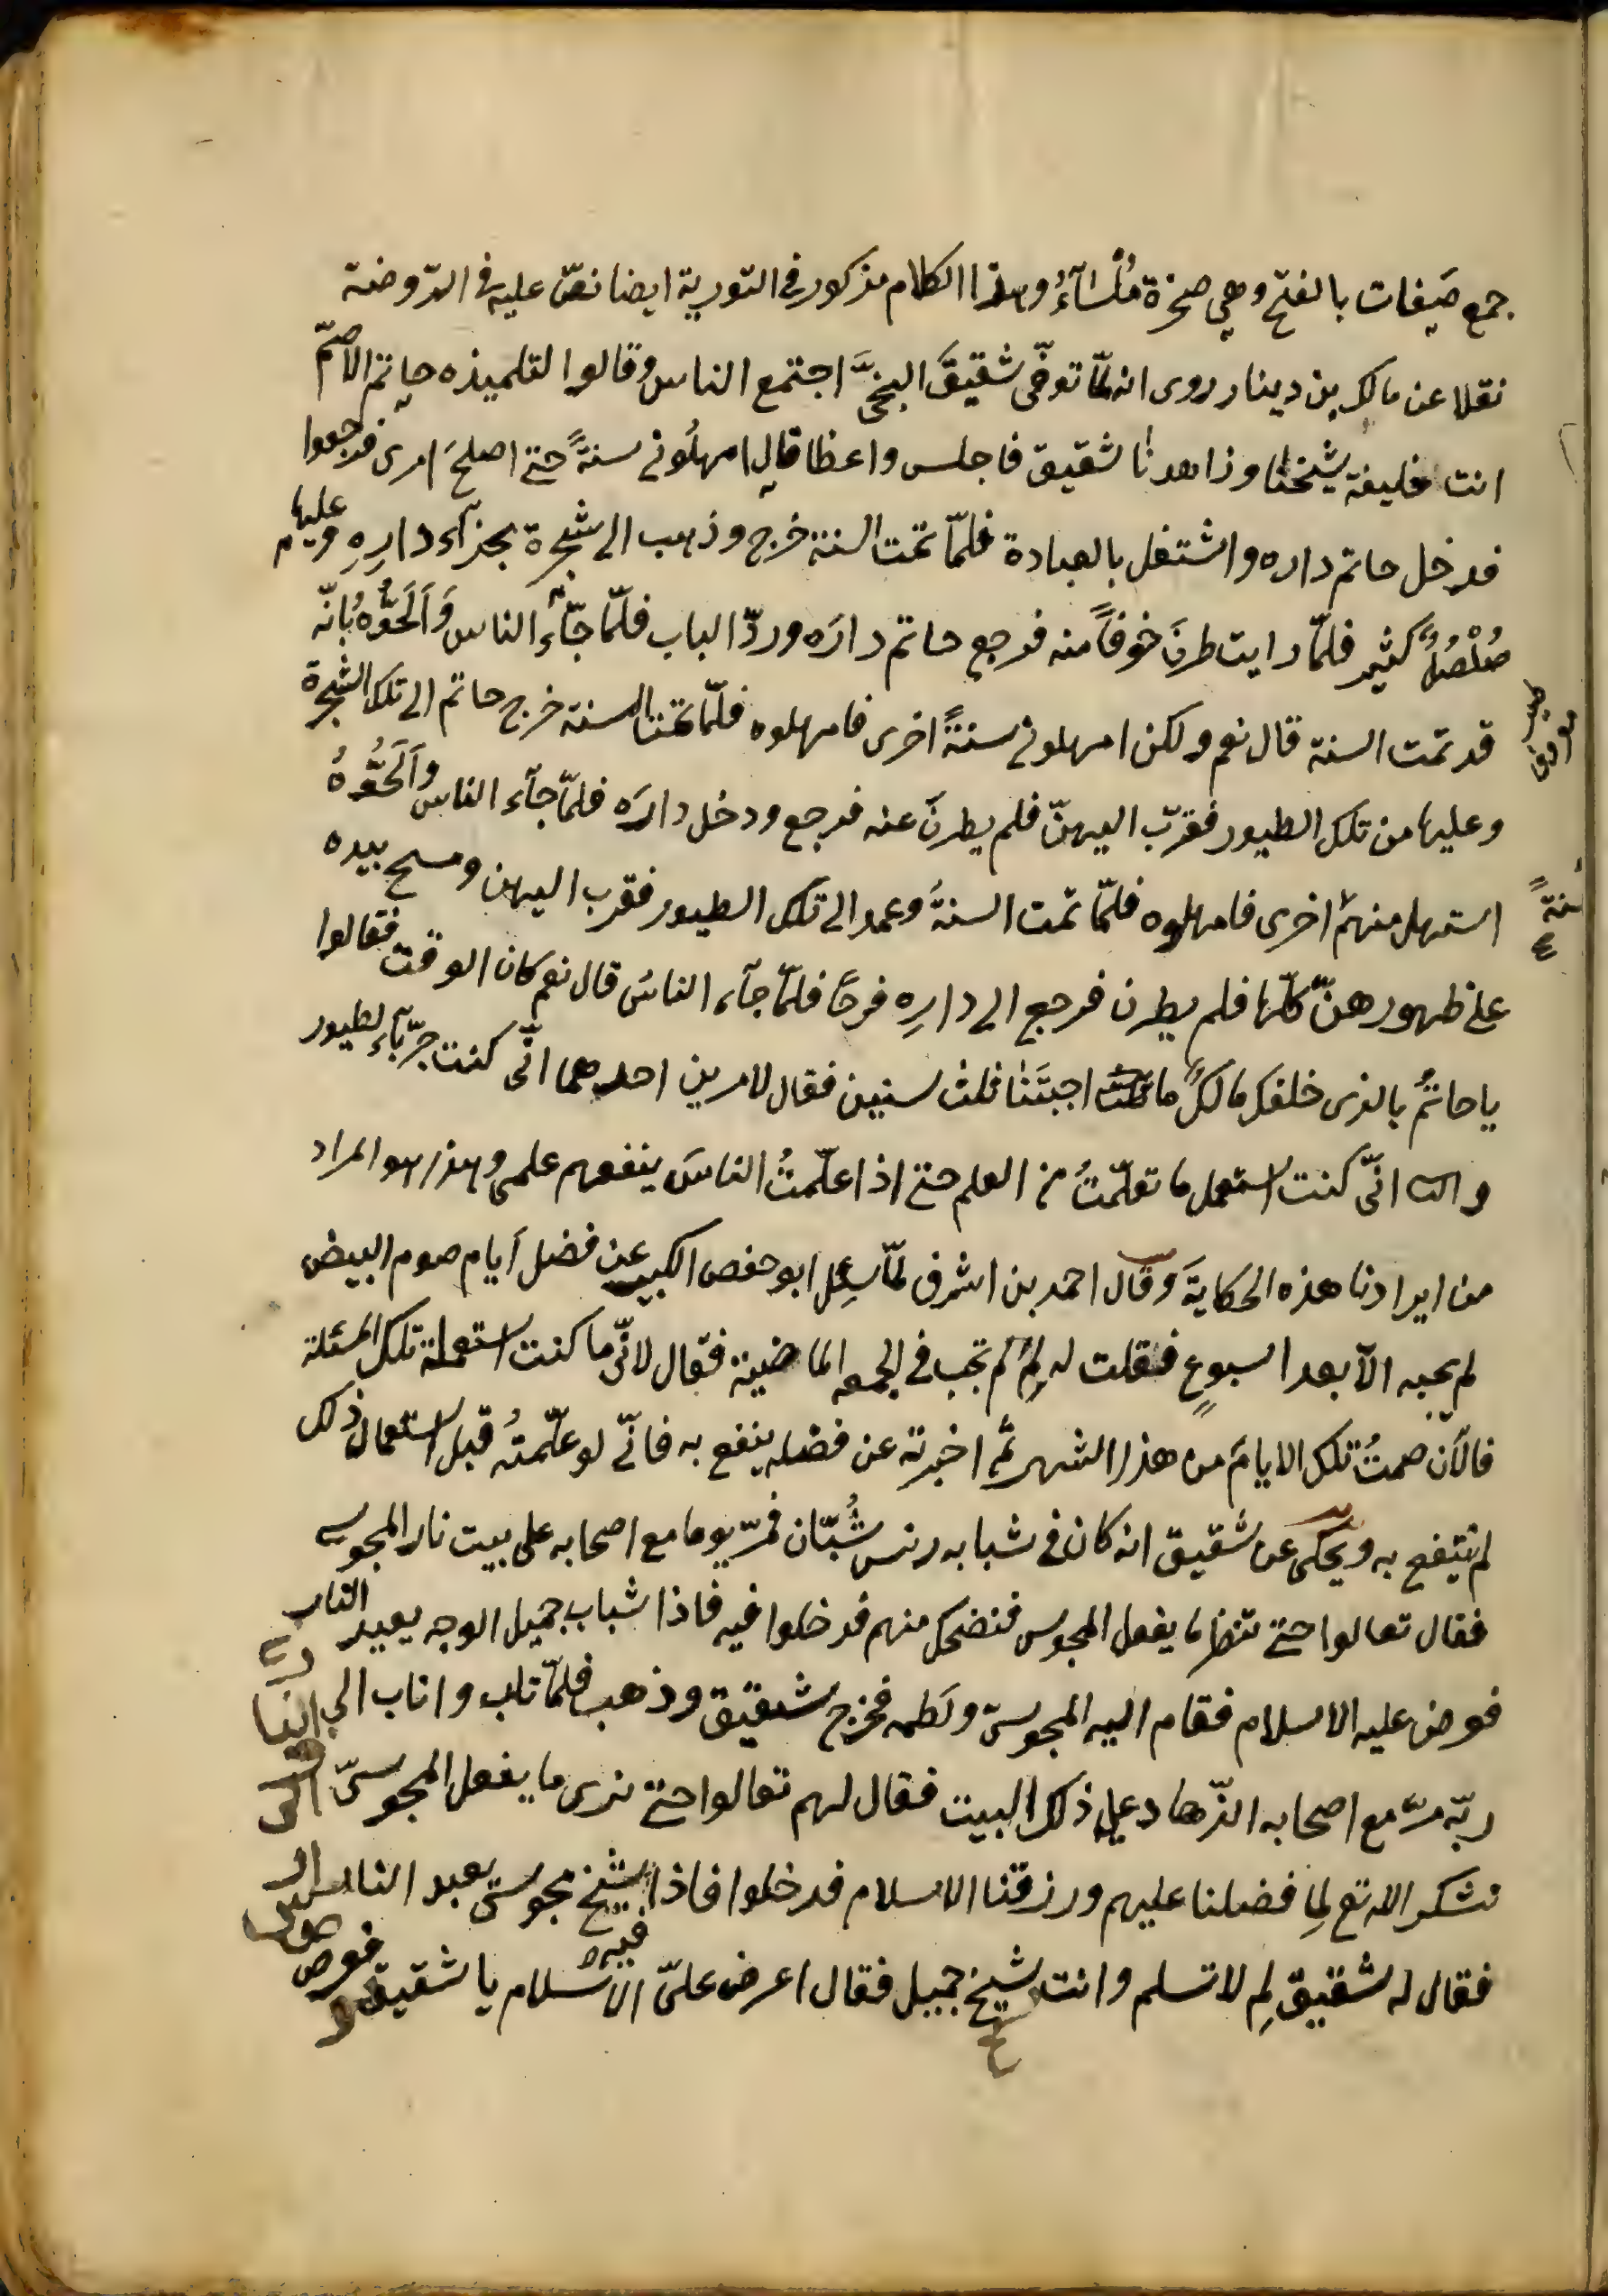 جمع صَيفات بالفتح وهي صخرة مُلْسَآءُ وهذا الكلام مذكور في التورية ايضا نصّ عليه في الرّوضة
نقلا عن مالك بن دينار روى انه لمّا توفّى شقيقَ البخىَّ اجتمع الناس وقالوا لتلميذه حاتم الاصمّ
انت خليفة شيخنا وزاهدنا شقيق فاجلس واعظا قال امهلُونى سنةً حتى اصلحَ امرى فرجعوا
فدخل حاتم داره واشتغل بالعبادة فلمّا تمّت السنة خرج وذهب الى شجرة بحذآء دارِهِ وعليها
صُلْصُلٌ كثير فلمّا رايت طرنَ خوفاً منه فرجع حاتم دارَه وردّ الباب فلمّا جآء الناس وَاَلَحُّوْهُ بُانّه
قد تمّت السنة قال نعم ولكن امهلونى سنةً اخرى فامهلوه فلمّا تمّت السنة خرج حاتم الى تلك الشجرة
وعليها من تلك الطيور فقرّب اليهنّ فلم يطرنَ عنه فرجع ودخل دارَه فلمّا جآء الناس وَاَلَحُّوْهُ
استمهل منهم اخرى فامهلوه فلمّا تمّت السنةُ وعمد الى تلك الطيور فقرب اليهن ومسح بيده
سنةً
على ظهورهنّ كلّها فلم يطرن فرجع الى دارِه فرحًا فلمّا جآء الناسُ قال نعم كان الوقت فقالوا
ياحاتمُ بالذى خلقك مالكَ ما اجبتَنا ثلث سنين فقال لامرين احدهما انّى كنت جرّبآء لطيور
والثانى انّى كنت استعمل ما تعلّمتُ من العلم حتى اذا علّمتُ الناسَ ينفعهم علمى وهذا هو المراد
من ايرادنا هذه الحكايةَ وقال احمد بن اشرف لمّا سئل ابو حفص الكبير عن فضل أيام صوم البيض
لم يجبه الاّ بعد اسبوعٍ فقلت له لِمَ لم تجب في الجمعه الماضية فقال لانّى ما كنت استعملة تلك المسئلة
فالآن صمتُ تلك الايامَ من هذا الشهر ثمّ اخبرته عن فضله ينفع به فانّى لو علّمتُه قبل استعمال ذلك
لم ينتفع به ويحكى عن شقيق انه كان في شبابه رئس شُبّان فمرّ يوما مع اصحابه على بيت نار المجوس
فقال تعالوا حتى ننظر ما يفعل المجوس فنضحك منهم فدخلوا فيه فاذا شباب جميل الوجه يعبد النار
فعرض عليه الاسلام فقام اليه المجوسىّ ولطمه فخرج شقيق وذهب فلمّا تاب واناب الى
ربّه مرّ مع اصحابه الزّهاد على ذلك البيت فقال لهم تعالوا حتى نرى ما يفعل المجوسىّ
نشكر الله تع لِما فضلنا عليهم ورزقنا الاسلام فدخلوا فاذا شيخ مجوسىّ يعبد النار
فقال له شقيق لِمَ لا تسلم وانت شيخ جميل فقال اعرض علىّ الاسلام يا شقيق فعرض